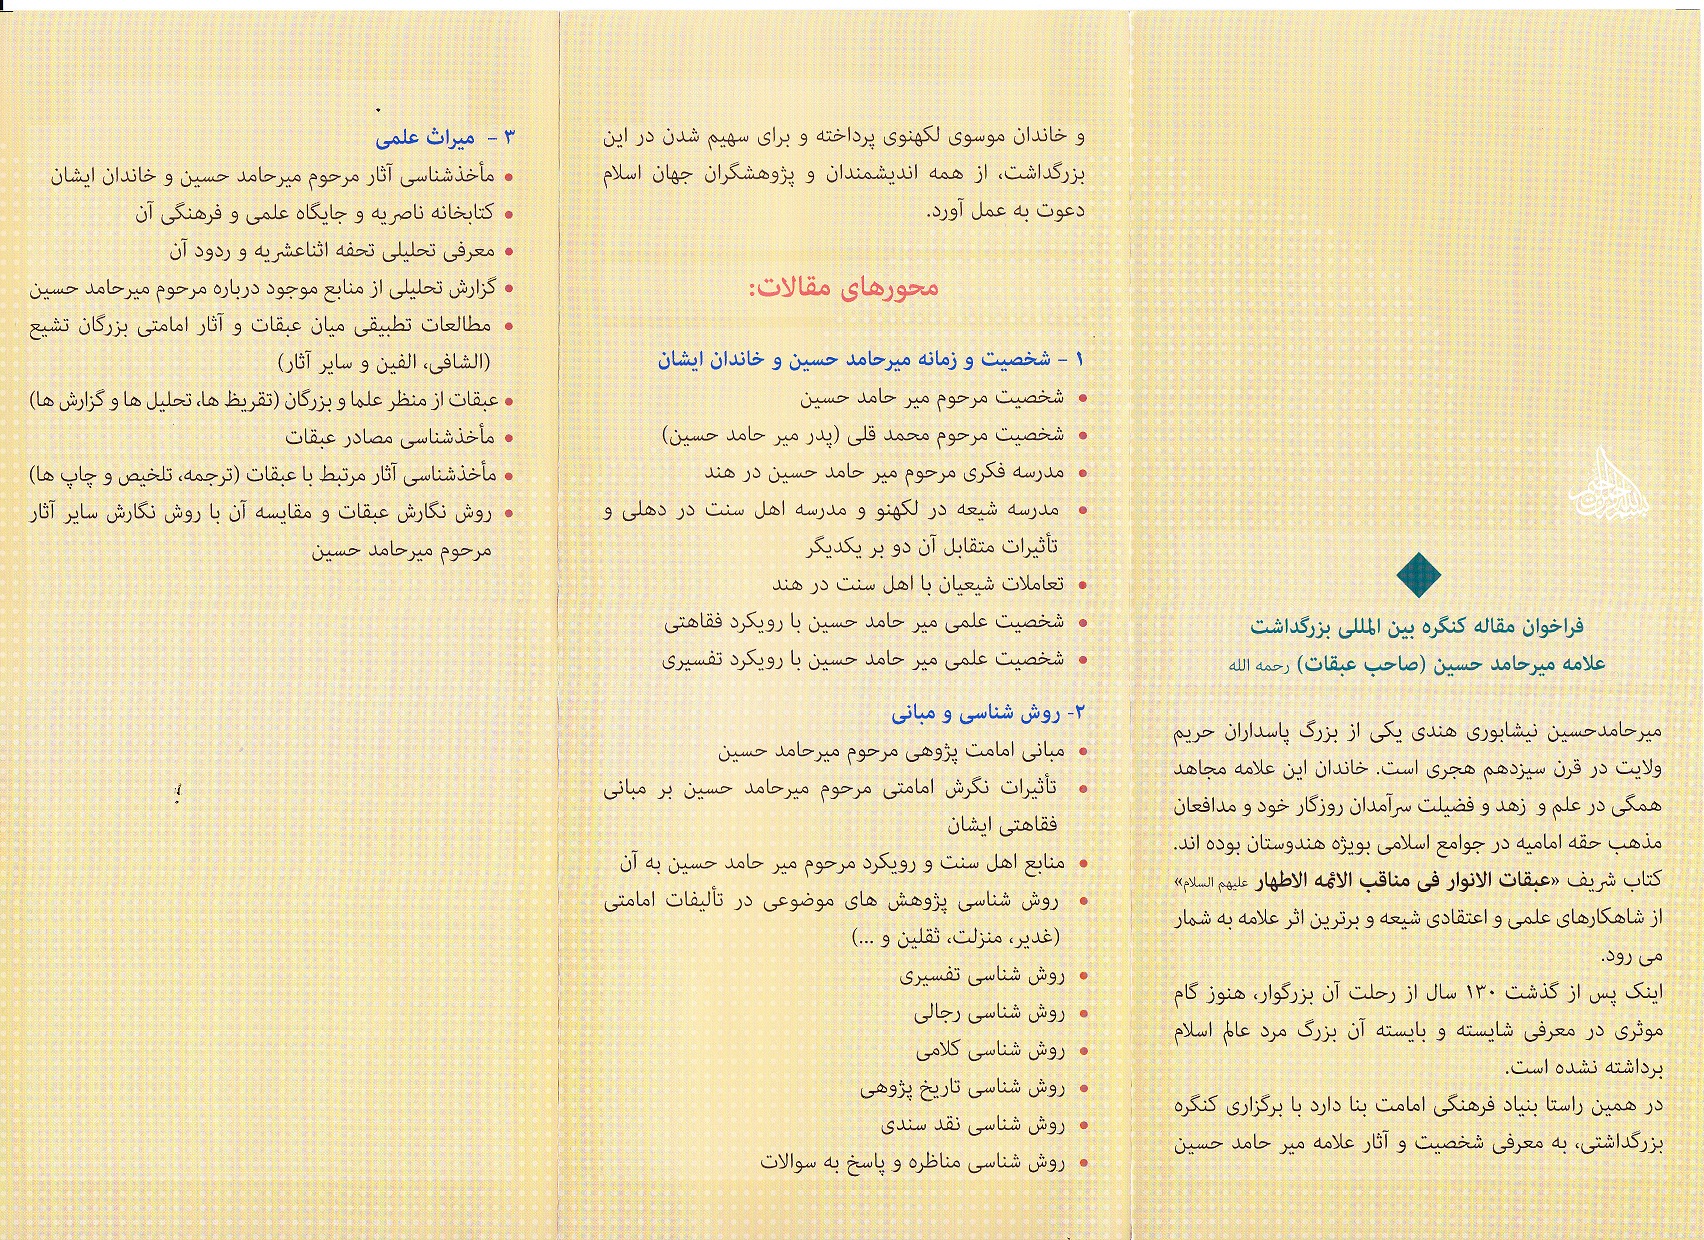 فراخوان مقاله کنگره بین المللی بزرگداشت
علامه میرحامد حسین (صاحب عبقات) رحمه الله
میرحامدحسین نیشابوری هندی یکی از بزرگ پاسداران حریم
ولایت در قرن سیزدهم هجری است. خاندان این علامه مجاهد
همگی در علم و زهد و فضیلت سرآمدان روزگار خود و مدافعان
مذهب حقه امامیه در جوامع اسلامی بویژه هندوستان بوده اند.
کتاب شریف «عبقات الانوار فی مناقب الائمه الاطهار علیهم السلام»
از شاهکارهای علمی و اعتقادی شیعه و برترین اثر علامه به شمار
می رود.
اینک پس از گذشت ۱۳۰ سال از رحلت آن بزرگوار، هنوز گام
موثری در معرفی شایسته و بایسته آن بزرگ مرد عالم اسلام
برداشته نشده است.
در همین راستا بنیاد فرهنگی امامت بنا دارد با برگزاری کنگره
بزرگداشتی، به معرفی شخصیت و آثار علامه میر حامد حسین
و خاندان موسوی لکهنوی پرداخته و برای سهیم شدن در این
بزرگداشت، از همه اندیشمندان و پژوهشگران جهان اسلام
دعوت به عمل آورد.
محورهای مقالات:
۱ - شخصیت و زمانه میرحامد حسین و خاندان ایشان
• شخصیت مرحوم میر حامد حسین
• شخصیت مرحوم محمد قلی (پدر میر حامد حسین)
• مدرسه فکری مرحوم میر حامد حسین در هند
• مدرسه شیعه در لکهنو و مدرسه اهل سنت در دهلی و
تأثیرات متقابل آن دو بر یکدیگر
• تعاملات شیعیان با اهل سنت در هند
• شخصیت علمی میر حامد حسین با رویکرد فقاهتی
• شخصیت علمی میر حامد حسین با رویکرد تفسیری
۲- روش شناسی و مبانی
• مبانی امامت پژوهی مرحوم میرحامد حسین
• تأثیرات نگرش امامتی مرحوم میرحامد حسین بر مبانی
فقاهتی ایشان
• منابع اهل سنت و رویکرد مرحوم میر حامد حسین به آن
• روش شناسی پژوهش های موضوعی در تألیفات امامتی
(غدیر، منزلت، ثقلین و ...)
• روش شناسی تفسیری
• روش شناسی رجالی
• روش شناسی کلامی
• روش شناسی تاریخ پژوهی
• روش شناسی نقد سندی
• روش شناسی مناظره و پاسخ به سوالات
۳ - میراث علمی
• مأخذشناسی آثار مرحوم میرحامد حسین و خاندان ایشان
• کتابخانه ناصریه و جایگاه علمی و فرهنگی آن
• معرفی تحلیلی تحفه اثناعشریه و ردود آن
• گزارش تحلیلی از منابع موجود درباره مرحوم میرحامد حسین
• مطالعات تطبیقی میان عبقات و آثار امامتی بزرگان تشیع
(الشافی، الفین و سایر آثار)
• عبقات از منظر علما و بزرگان (تقریظ ها، تحلیل ها و گزارش ها)
• مأخذشناسی مصادر عبقات
• مأخذشناسی آثار مرتبط با عبقات (ترجمه، تلخیص و چاپ ها)
• روش نگارش عبقات و مقایسه آن با روش نگارش سایر آثار
مرحوم میرحامد حسین